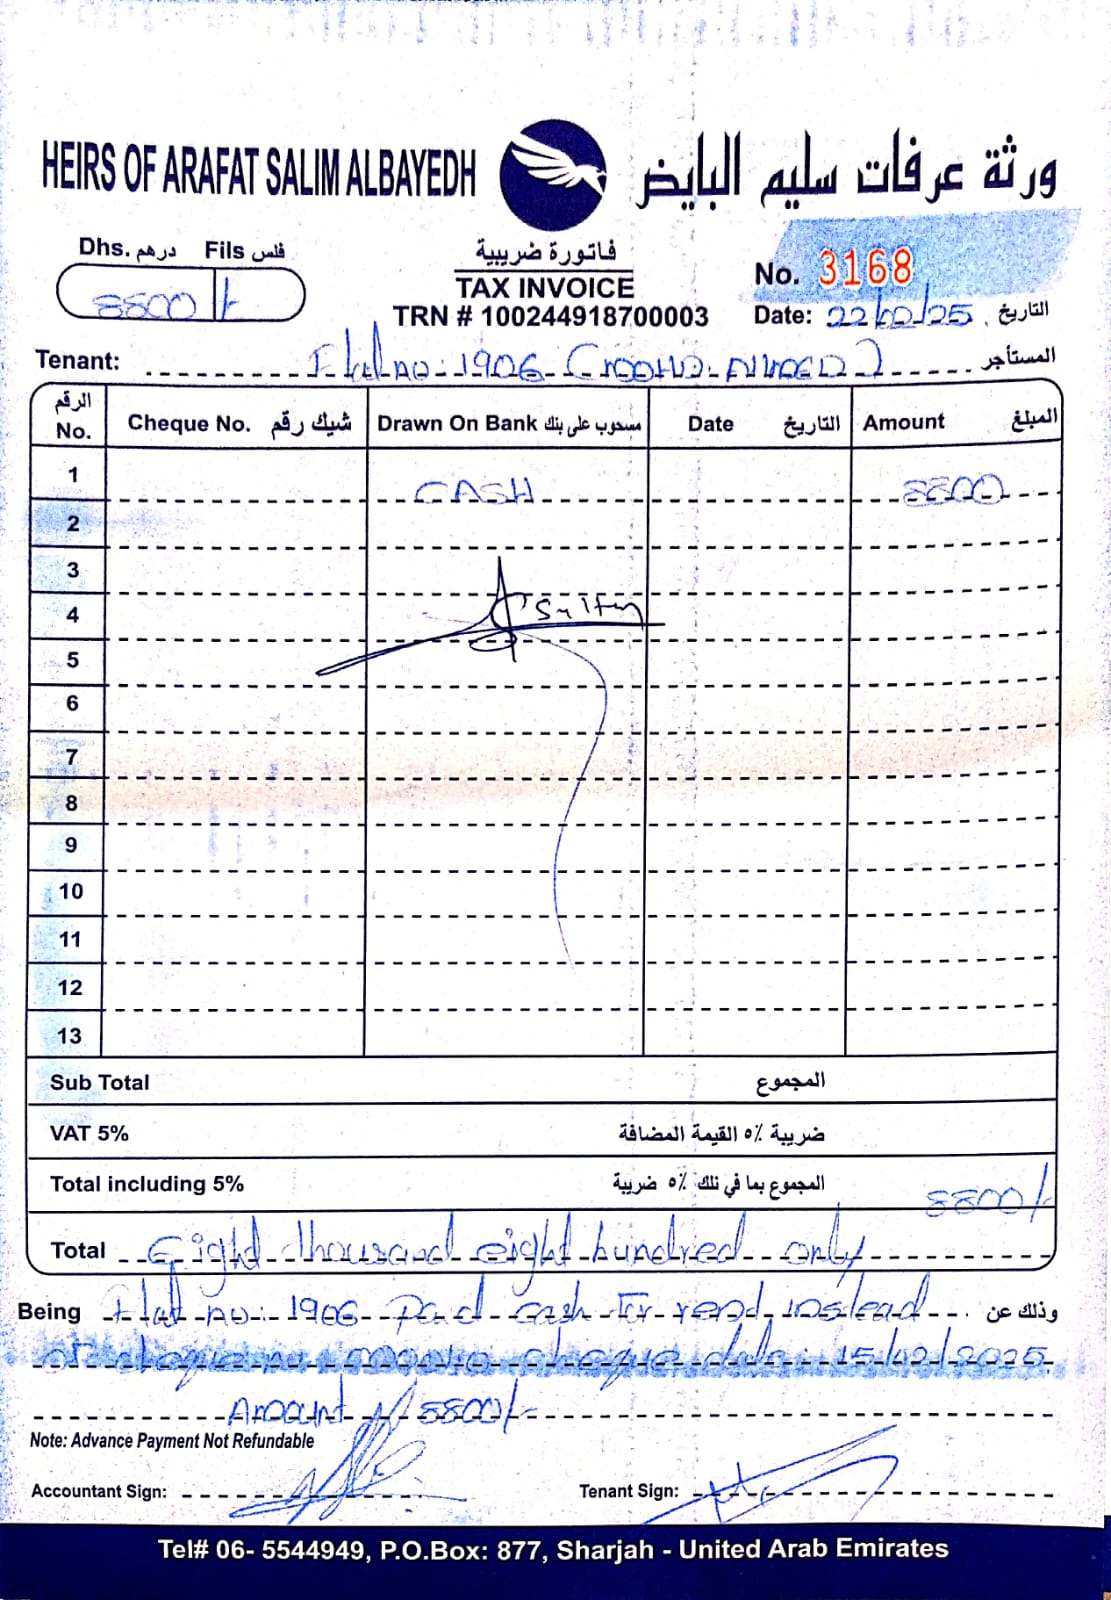 HEIRS OF ARAFAT SALIM ALBAYEDH ورثة عرفات سليم البايض
Dhs. درهم Fils فلس
8800 /-
فاتورة ضريبية
TAX INVOICE
TRN # 100244918700003
No. 3168
Date: 22/02/25 التاريخ
Tenant: Flat no: 1906 المستأجر
الرقم No. Cheque No. شيك رقم Drawn On Bank مسحوب على بنك Date التاريخ Amount المبلغ
1 CASH 8800
2
3
4 Sultan
5
6
7
8
9
10
11
12
13
Sub Total المجموع
VAT 5% ضريبة ٥٪ القيمة المضافة
Total including 5% المجموع بما في تلك ٥٪ ضريبة 8800/-
Total Eight thousand eight hundred only
Being Flat no: 1906 Paid cash for rent instead وذلك عن
of cheque no cheque date: 15/02/2025
Amount 8800/-
Note: Advance Payment Not Refundable
Accountant Sign: Tenant Sign:
Tel# 06- 5544949, P.O.Box: 877, Sharjah - United Arab Emirates